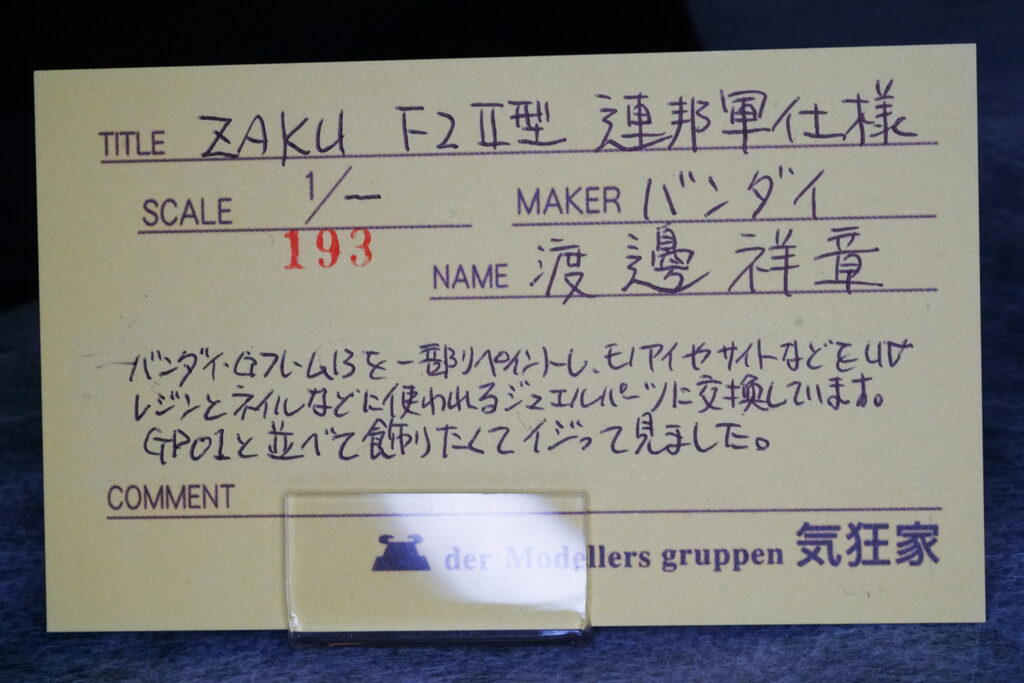 TITLE ZAKU F2 II型 連邦軍仕様
SCALE 1/ー MAKER バンダイ
193
NAME 渡邊 祥章
バンダイ・Gフレーム13を一部リペイントし、モノアイやサイトなどをUV
レジンとネイルなどに使われるジュエルパーツに交換しています。
GP01と並べて飾りたくてイジって見ました。
COMMENT
der Modellers gruppen 気狂家